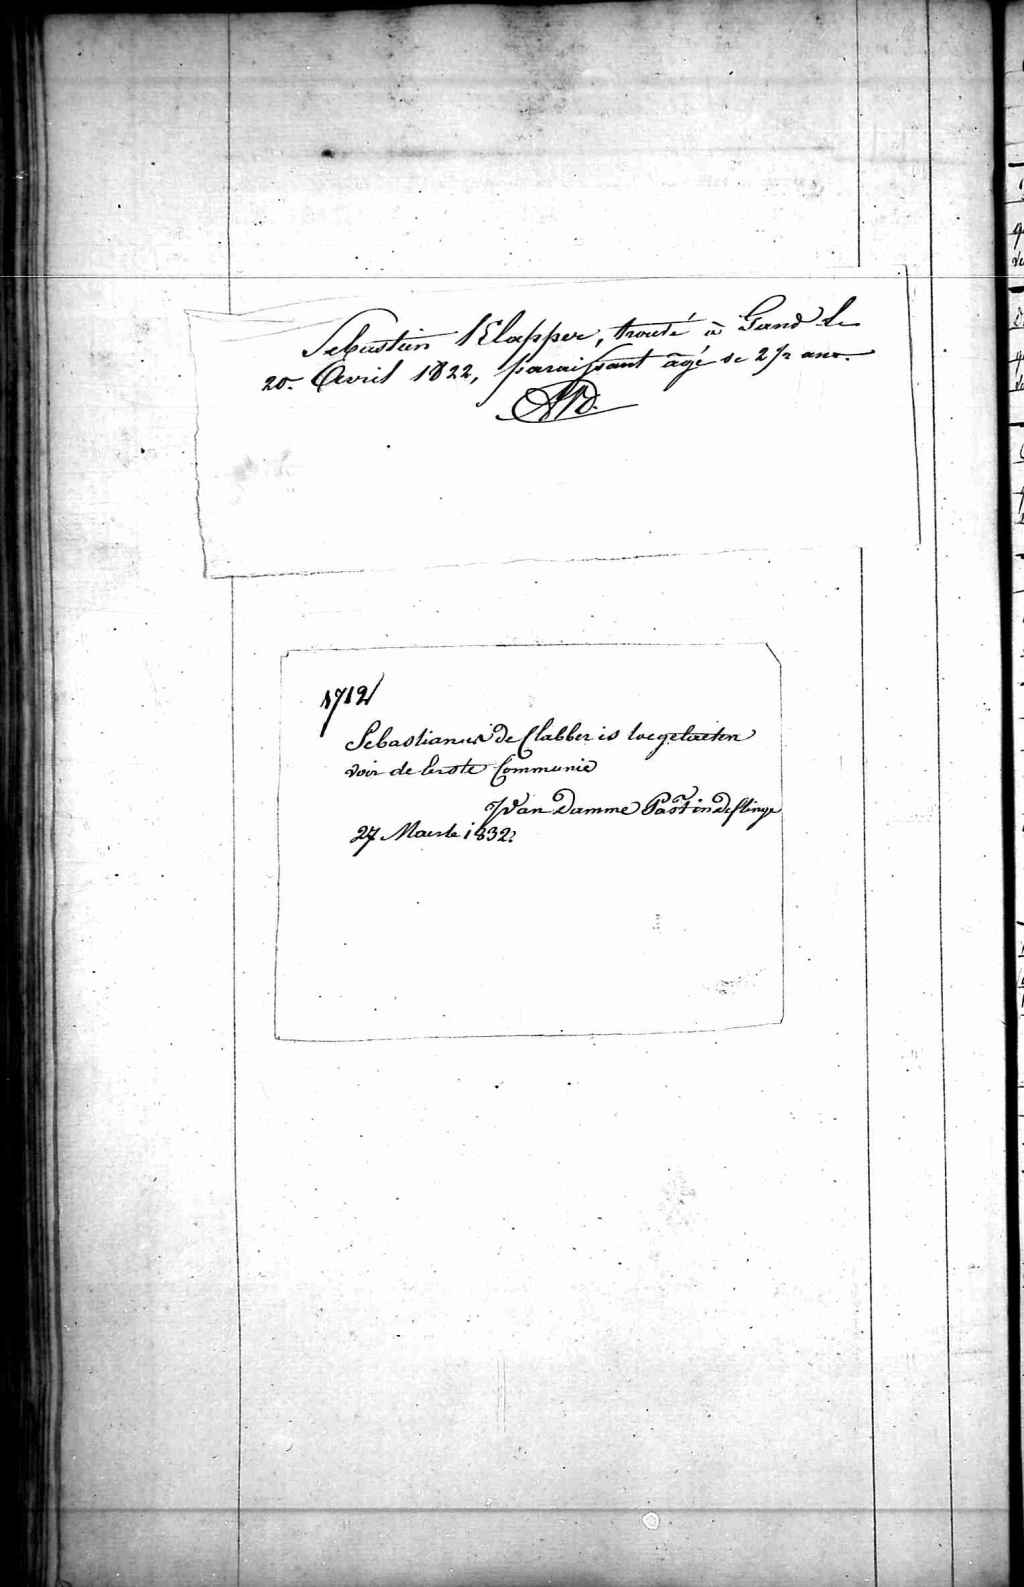 Sebastien Klapper, trouvé à Gand le
20. Avril 1822, paraissant âgé de 2 1/2 ans.
1712
Sebastianus de Clabber is toegelaeten
voir de Eerste Communie
J Van Damme Past in De Clinge
27 Maerte 1832